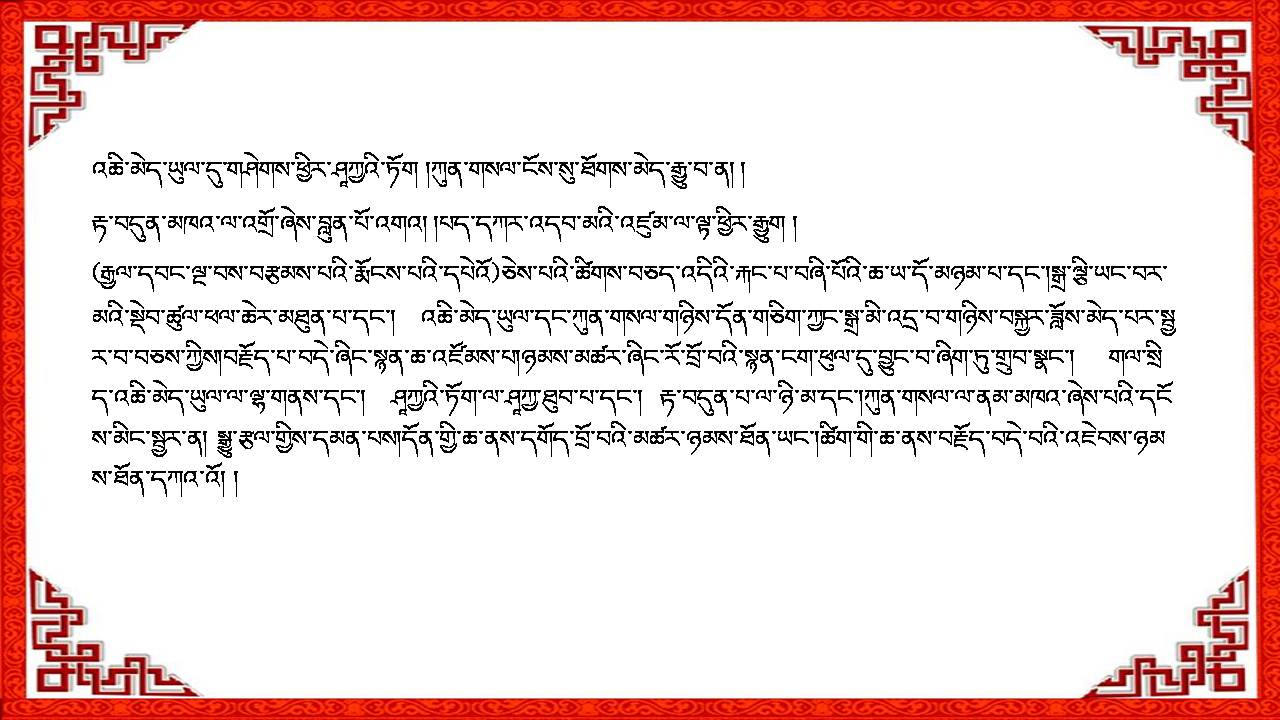 འཆི་མེད་ཡུལ་དུ་གཤེགས་ཕྱིར་ཤཱཀྱའི་ཏོག །ཀུན་གསལ་ངོས་སུ་ཐོགས་མེད་རྒྱུ་བ་ན། །
རྟ་བདུན་མཁའ་ལ་འགྲོ་ཞེས་བླུན་པོ་འགའ། །པད་དཀར་འདབ་མའི་འཛུམ་ལ་ལྟ་ཕྱིར་རྒྱུག །
(རྒྱལ་དབང་ལྔ་བས་བརྩམས་པའི་རྨོངས་པའི་དཔེའོ)ཅེས་པའི་ཚིགས་བཅད་འདིའི་རྐང་པ་བཞི་པོའི་ཆ་ཡ་དོ་མཉམ་པ་དང་།སྒྲ་ལྕི་ཡང་བར་
མའི་སྡེབ་ཚུལ་ཕལ་ཆེར་མཐུན་པ་དང་། འཆི་མེད་ཡུལ་དང་ཀུན་གསལ་གཉིས་དོན་གཅིག་ཀྱང་སྒྲ་མི་འདྲ་བ་གཉིས་བསྐྱར་ཟློས་མེད་པར་སྦྱ
ར་བ་བཅས་ཀྱིས།བརྗོད་པ་བདེ་ཞིང་སྙན་ཆ་འཛོམས་པ།ཉམས་མཚར་ཞིང་རོ་བྲོ་བའི་སྙན་ངག་ཕུལ་དུ་བྱུང་བ་ཞིག་ཏུ་གྲུབ་སྣང་། གལ་སྲི
ད་འཆི་མེད་ཡུལ་ལ་ལྷ་གནས་དང་། ཤཱཀྱའི་ཏོག་ལ་ཤཱཀྱ་ཐུབ་པ་དང་། རྟ་བདུན་པ་ལ་ཉི་མ་དང་།ཀུན་གསལ་ལ་ནམ་མཁའ་ཞེས་པའི་དངོ
ས་མིང་སྦྱར་ན། སྒྱུ་རྩལ་གྱིས་དམན་པས།དོན་གྱི་ཆ་ནས་དགོད་བྲོ་བའི་མཚར་ཉམས་ཐོན་ཡང་།ཚིག་གི་ཆ་ནས་བརྗོད་བདེ་བའི་འཇེབས་ཉམ
ས་ཐོན་དཀའ་འོ། །